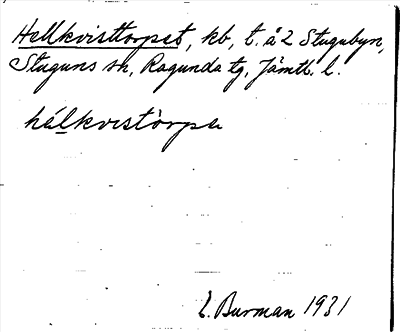 Hellkvisttorpet, kb, t. å 2 Stugubyn,
Stuguns sn, Ragunda tg, Jämtl. l.
hélkvistòrpe
L. Burman 1931